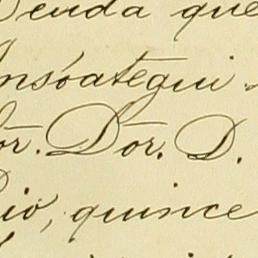 Deuda que
Insoategui
or. Dor. D.
io, quince